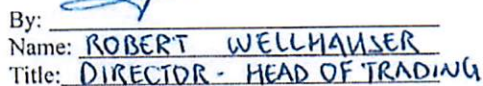 By:
Name: ROBERT WELLHAUSER
Title: DIRECTOR - HEAD OF TRADING